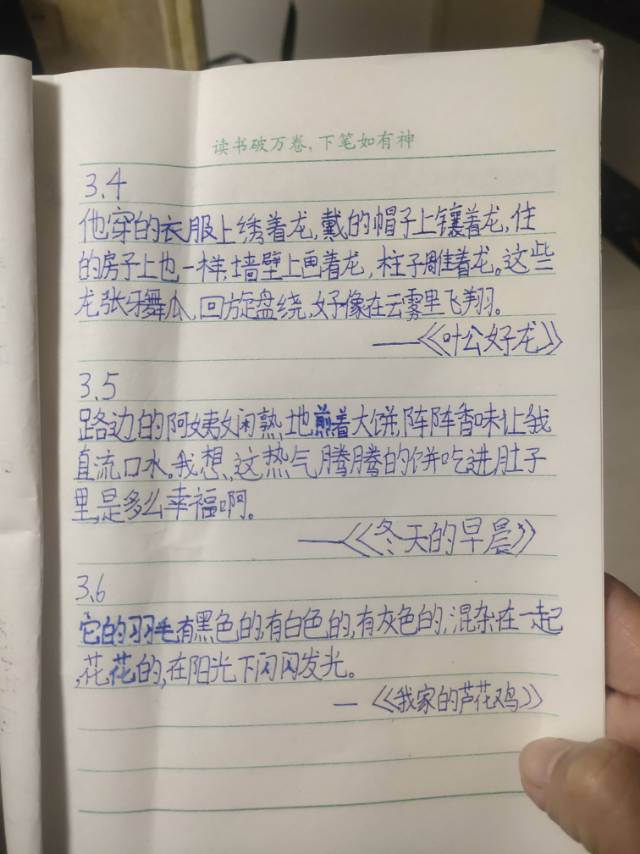 读书破万卷,下笔如有神
3.4
他穿的衣服上绣着龙,戴的帽子上镶着龙,住
的房子上也一样:墙壁上画着龙,柱子雕着龙。这些
龙张牙舞爪,回旋盘绕,好像在云雾里飞翔。
——《叶公好龙》
3.5
路边的阿姨娴熟地煎着大饼,阵阵香味让我
直流口水。我想,这热气腾腾的饼吃进肚子
里,是多么幸福啊。
——《冬天的早晨》
3.6
它的羽毛有黑色的,有白色的,有灰色的,混杂在一起
,花花的,在阳光下闪闪发光。
—《我家的芦花鸡》